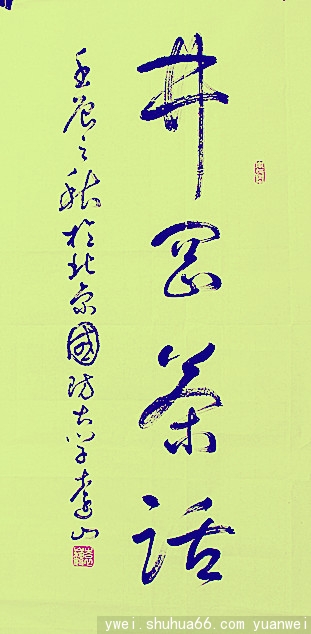 井岡茶话
壬辰之秋於北京國防大学山
ywei.shuhua66.com yuanwei